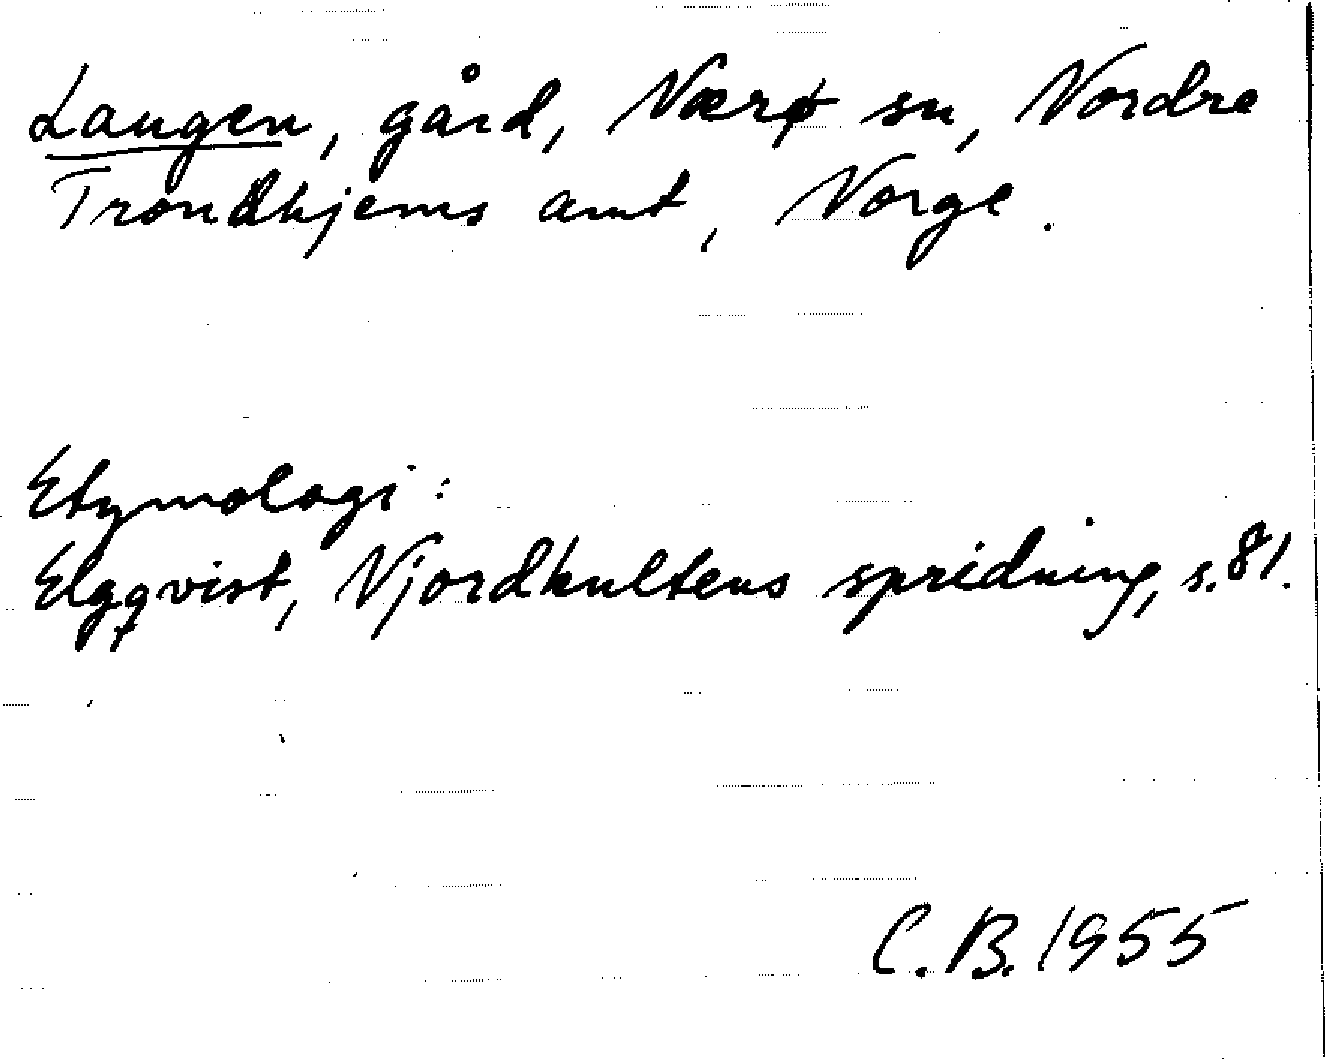 Laugen, gård, Nærø sn, Nordre
Trondhjems amt, Norge.
Etymologi:
Elgqvist, Njordkultens spridning, s. 81.
C.B. 1955